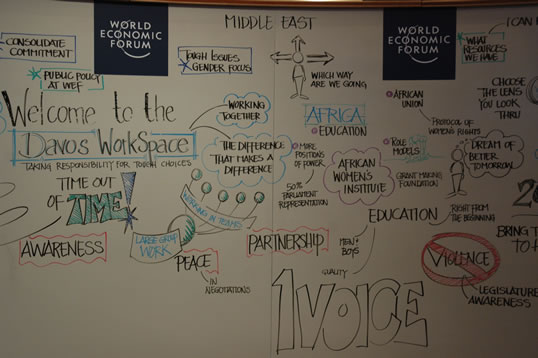 CONSOLIDATE
COMMITMENT
PUBLIC POLICY
AT WEF
WORLD
ECONOMIC
FORUM
MIDDLE EAST
TOUGH ISSUES
GENDER FOCUS
WHICH WAY
ARE WE GOING
WORLD
ECONOMIC
FORUM
WHAT
RESOURCES
WE HAVE
I CAN
CHOOSE
THE LENS
YOU LOOK
THRU
WELCOME TO THE
DAVOS WORKSPACE
TAKING RESPONSIBILITY FOR TOUGH CHOICES
TIME OUT
OF TIME!
WORKING
TOGETHER
THE DIFFERENCE
THAT MAKES A
DIFFERENCE
AFRICA
EDUCATION
MORE
POSITIONS
OF POWER
50%
PARLIAMENT
REPRESENTATION
AFRICAN
UNION
PROTOCOL OF
WOMEN'S RIGHTS
ROLE
MODELS
AFRICAN
WOMEN'S
INSTITUTE
GRANT MAKING
FOUNDATION
DREAM OF
BETTER
TOMORROW
EDUCATION
RIGHT FROM
THE BEGINNING
WORKING IN TEAMS
LARGE GROUP
WORK
AWARENESS
PEACE
IN
NEGOTIATIONS
PARTNERSHIP
MEN +
BOYS
QUALITY
1 VOICE
VIOLENCE
LEGISLATURE
AWARENESS
20
BRING T
TO